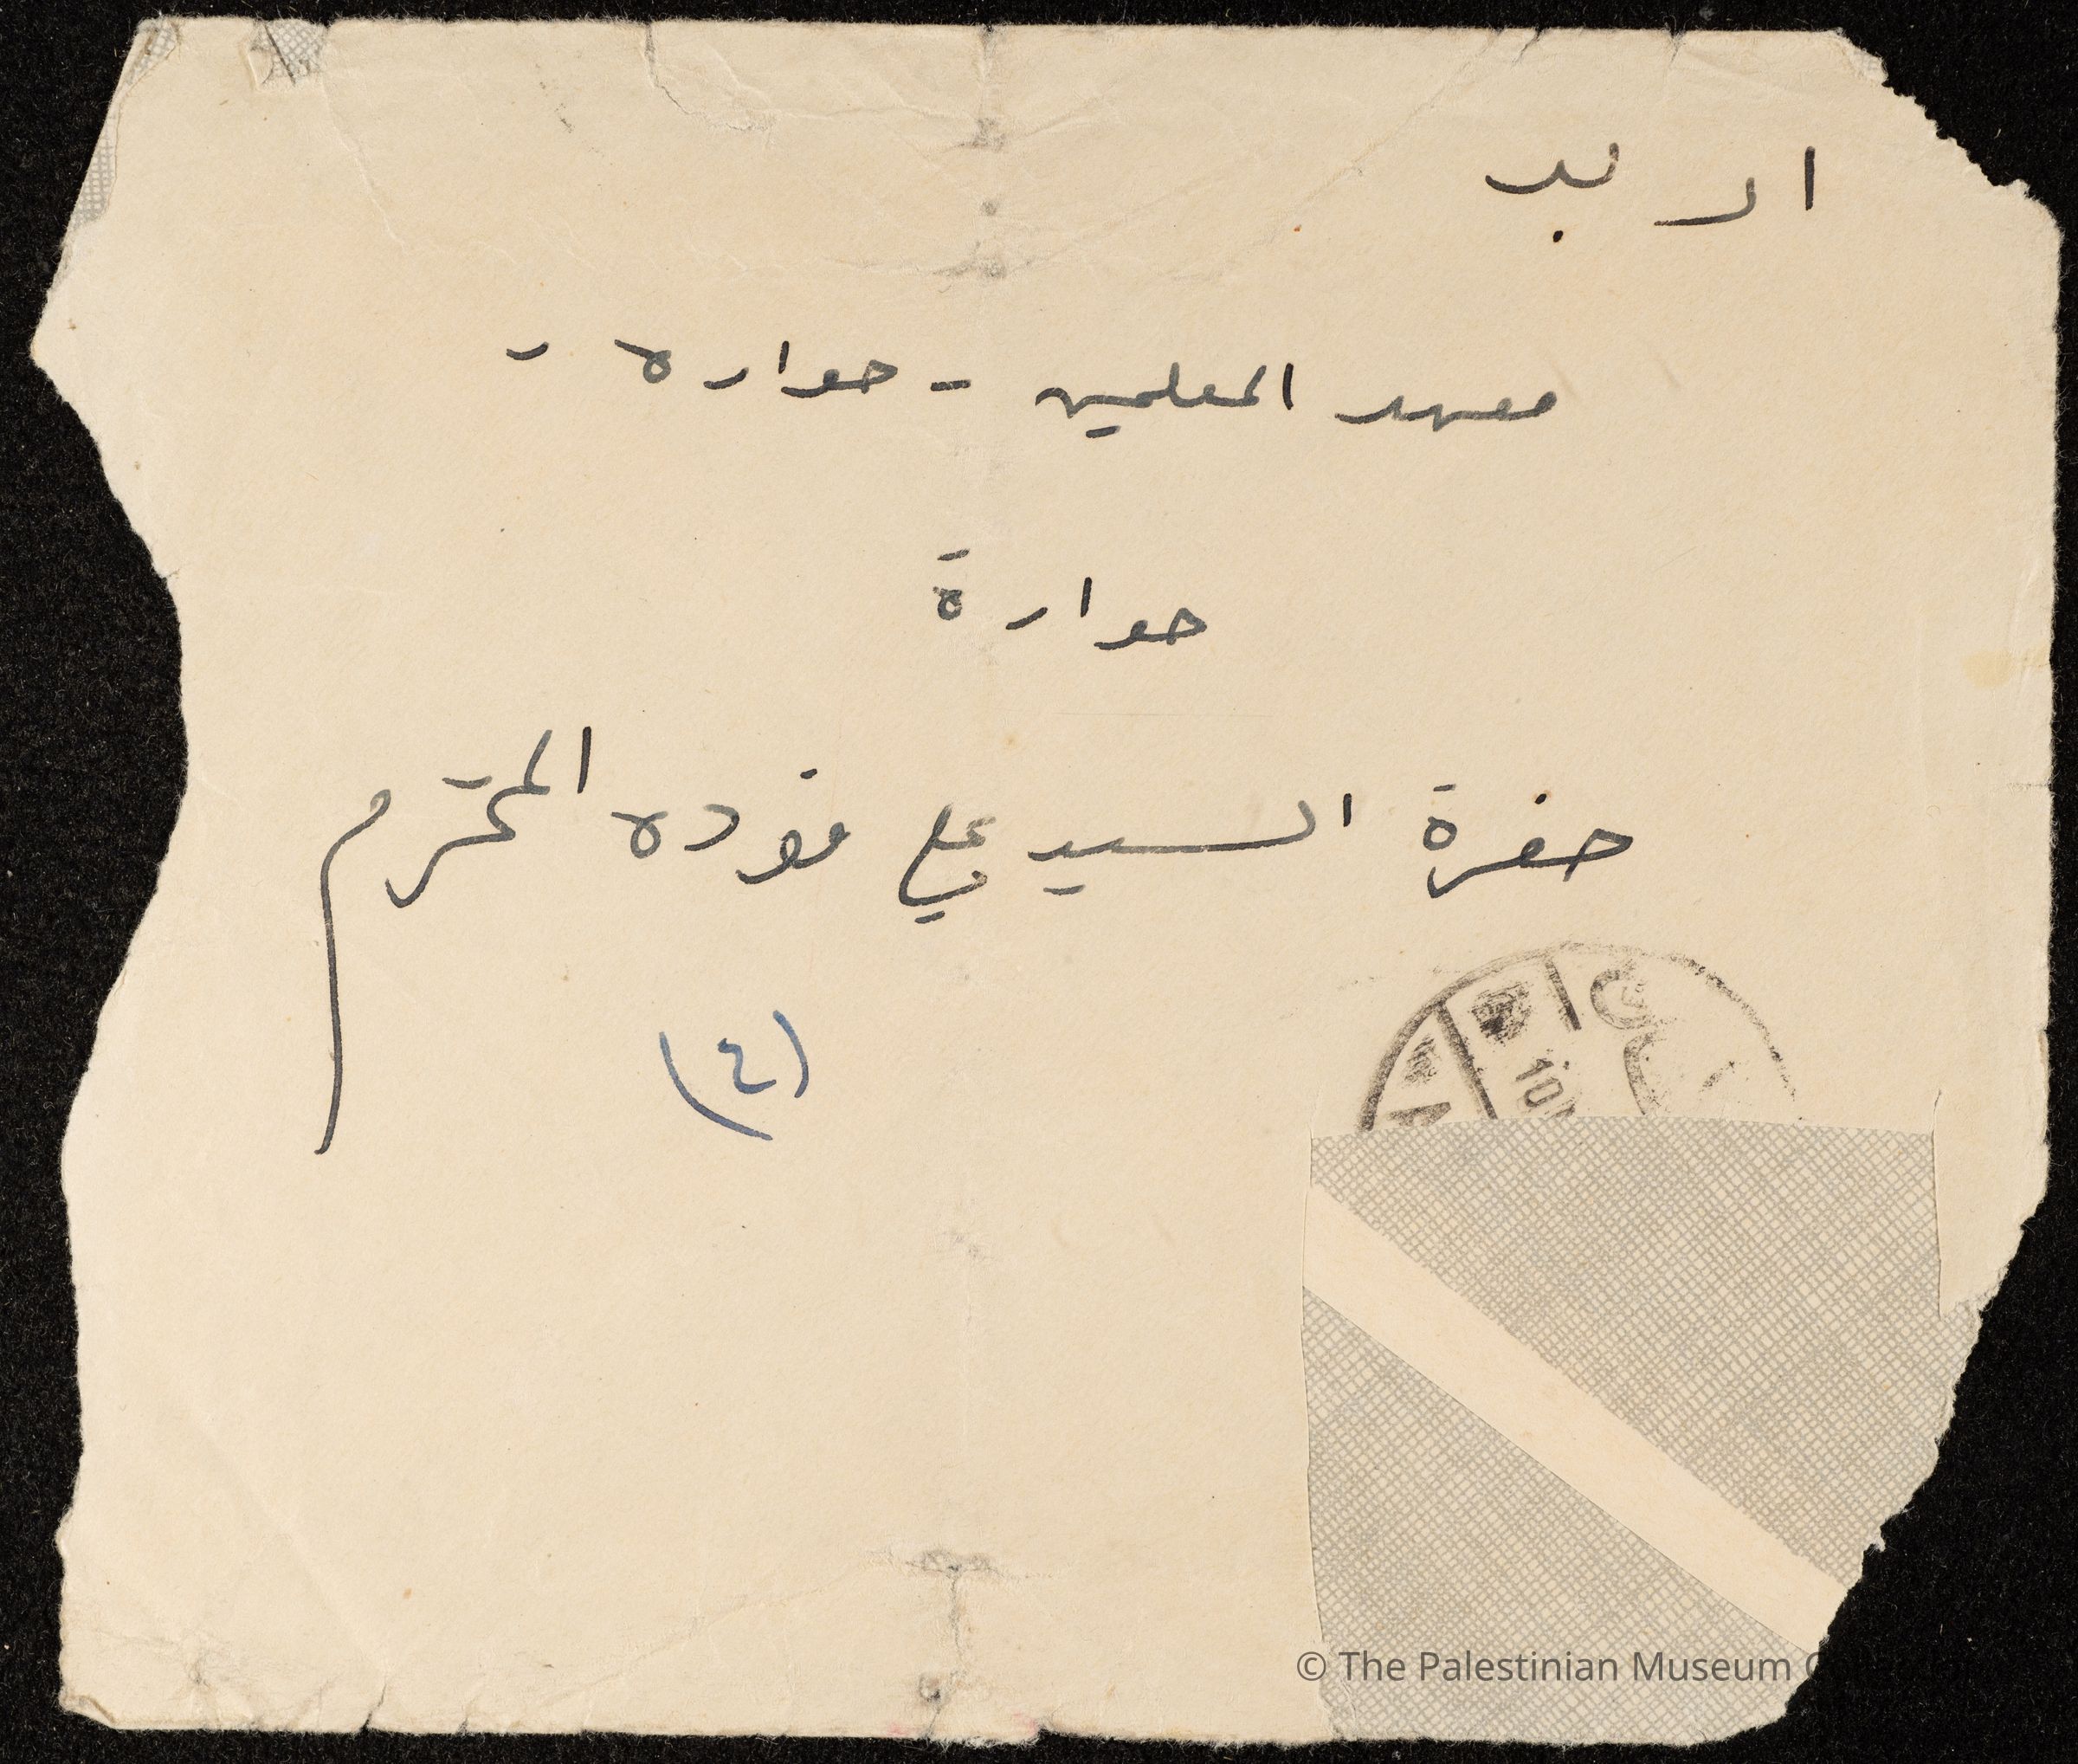 اربد
معهد المعلمين - حواره -
حوارة
حضرة السيد علي فوده المحترم
(٤)
10
© The Palestinian Museum